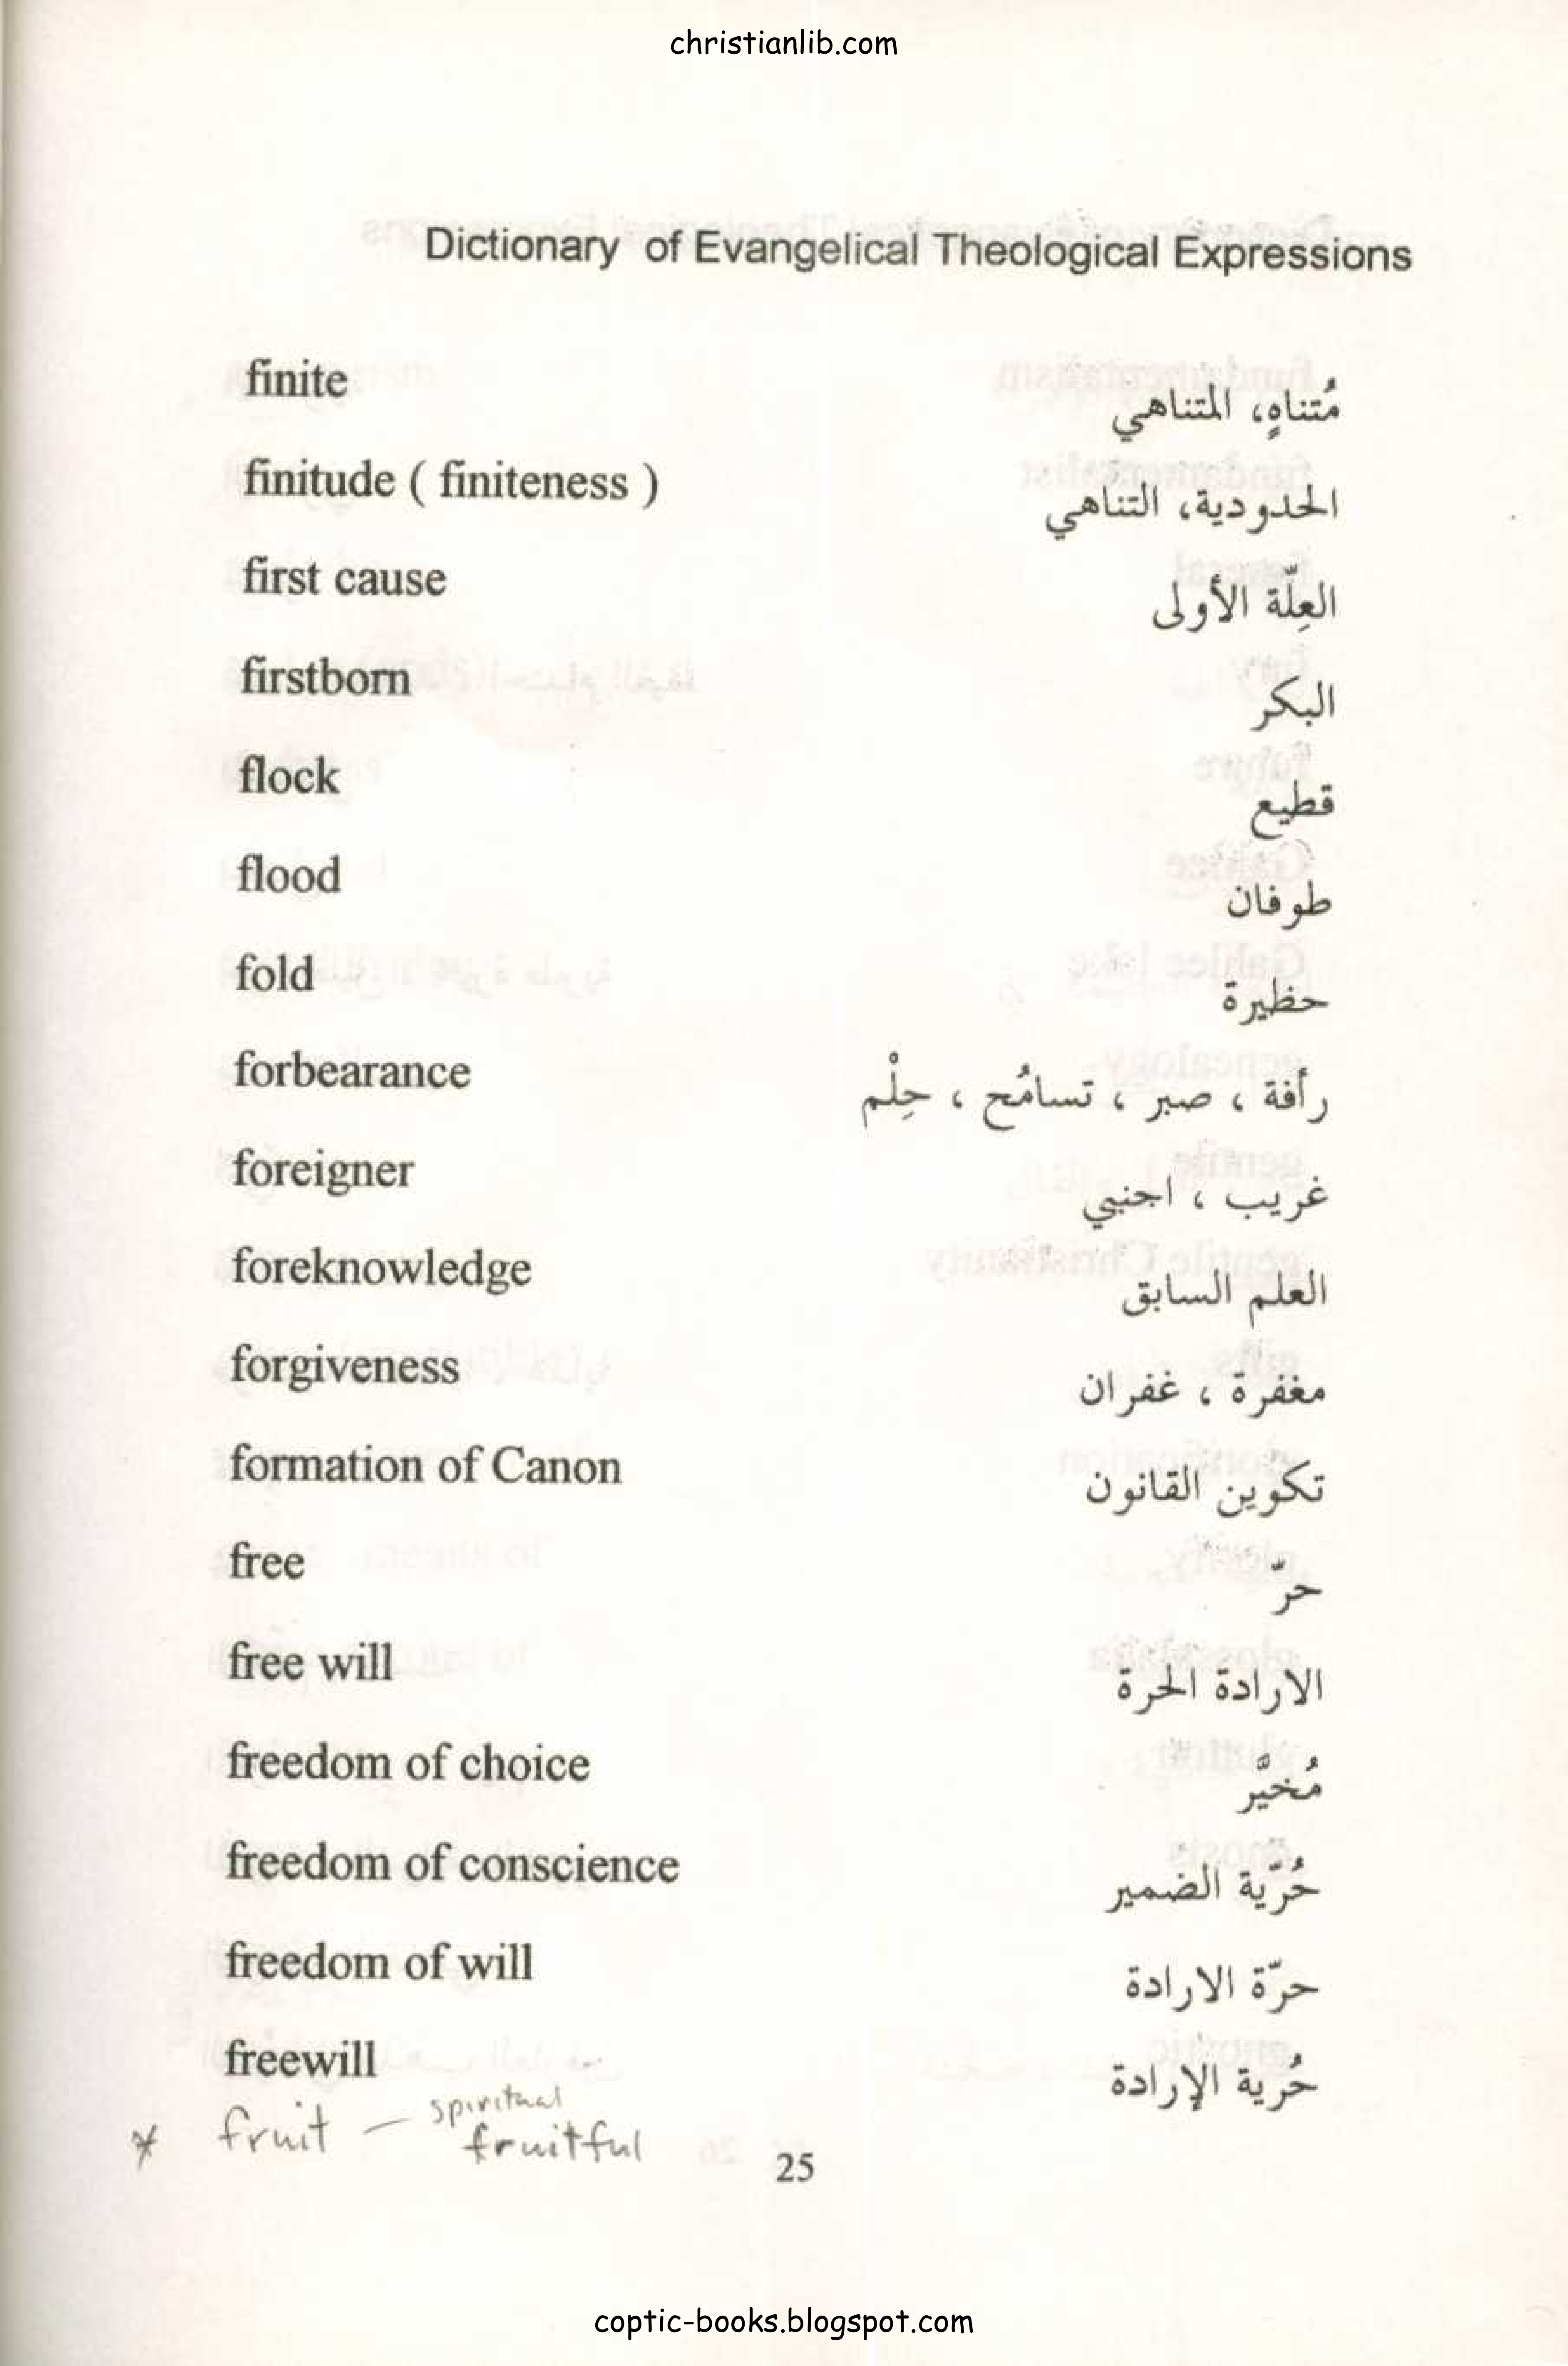 christianlib.com
Dictionary of Evangelical Theological Expressions
finite مُتناهٍ، المتناهي
finitude ( finiteness ) الحدودية، التناهي
first cause العِلّة الأولى
firstborn البكر
flock قطيع
flood طوفان
fold حظيرة
forbearance رأفة ، صبر ، تسامُح ، حِلْم
foreigner غريب ، اجنبي
foreknowledge العلم السابق
forgiveness مغفرة ، غفران
formation of Canon تكوين القانون
free حرّ
free will الارادة الحرة
freedom of choice مُخيَّر
freedom of conscience حُرّية الضمير
freedom of will حرّة الارادة
freewill حُرية الإرادة
* fruit — spiritual
fruitful
25
coptic-books.blogspot.com